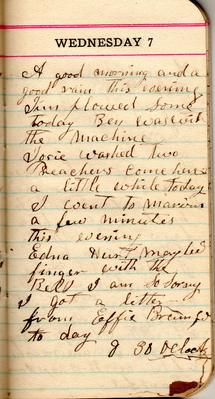 WEDNESDAY 7
A good morning and a
good rain this evening
Jim plowed some
today Bey was
the machine
Josie washed two
Preachers Come here
a little while today
I went to Marions
a few minutes
this evening
Edna Hurt
finger with the
Bell I am so sorry
I got a letter
from Effie
to day
8 30 Oclock